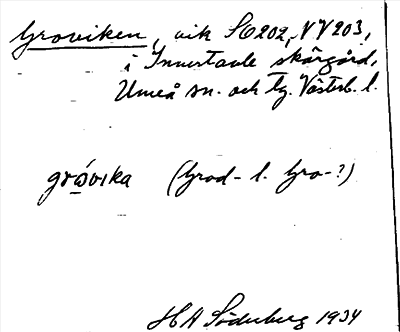 Groviken, vik SO202, NV203,
i Innertavle skärgård,
Umeå sn. och tg. Västerb. l.
grὼvıka (Grod- l. Gro-?)
HA Söderberg 1934